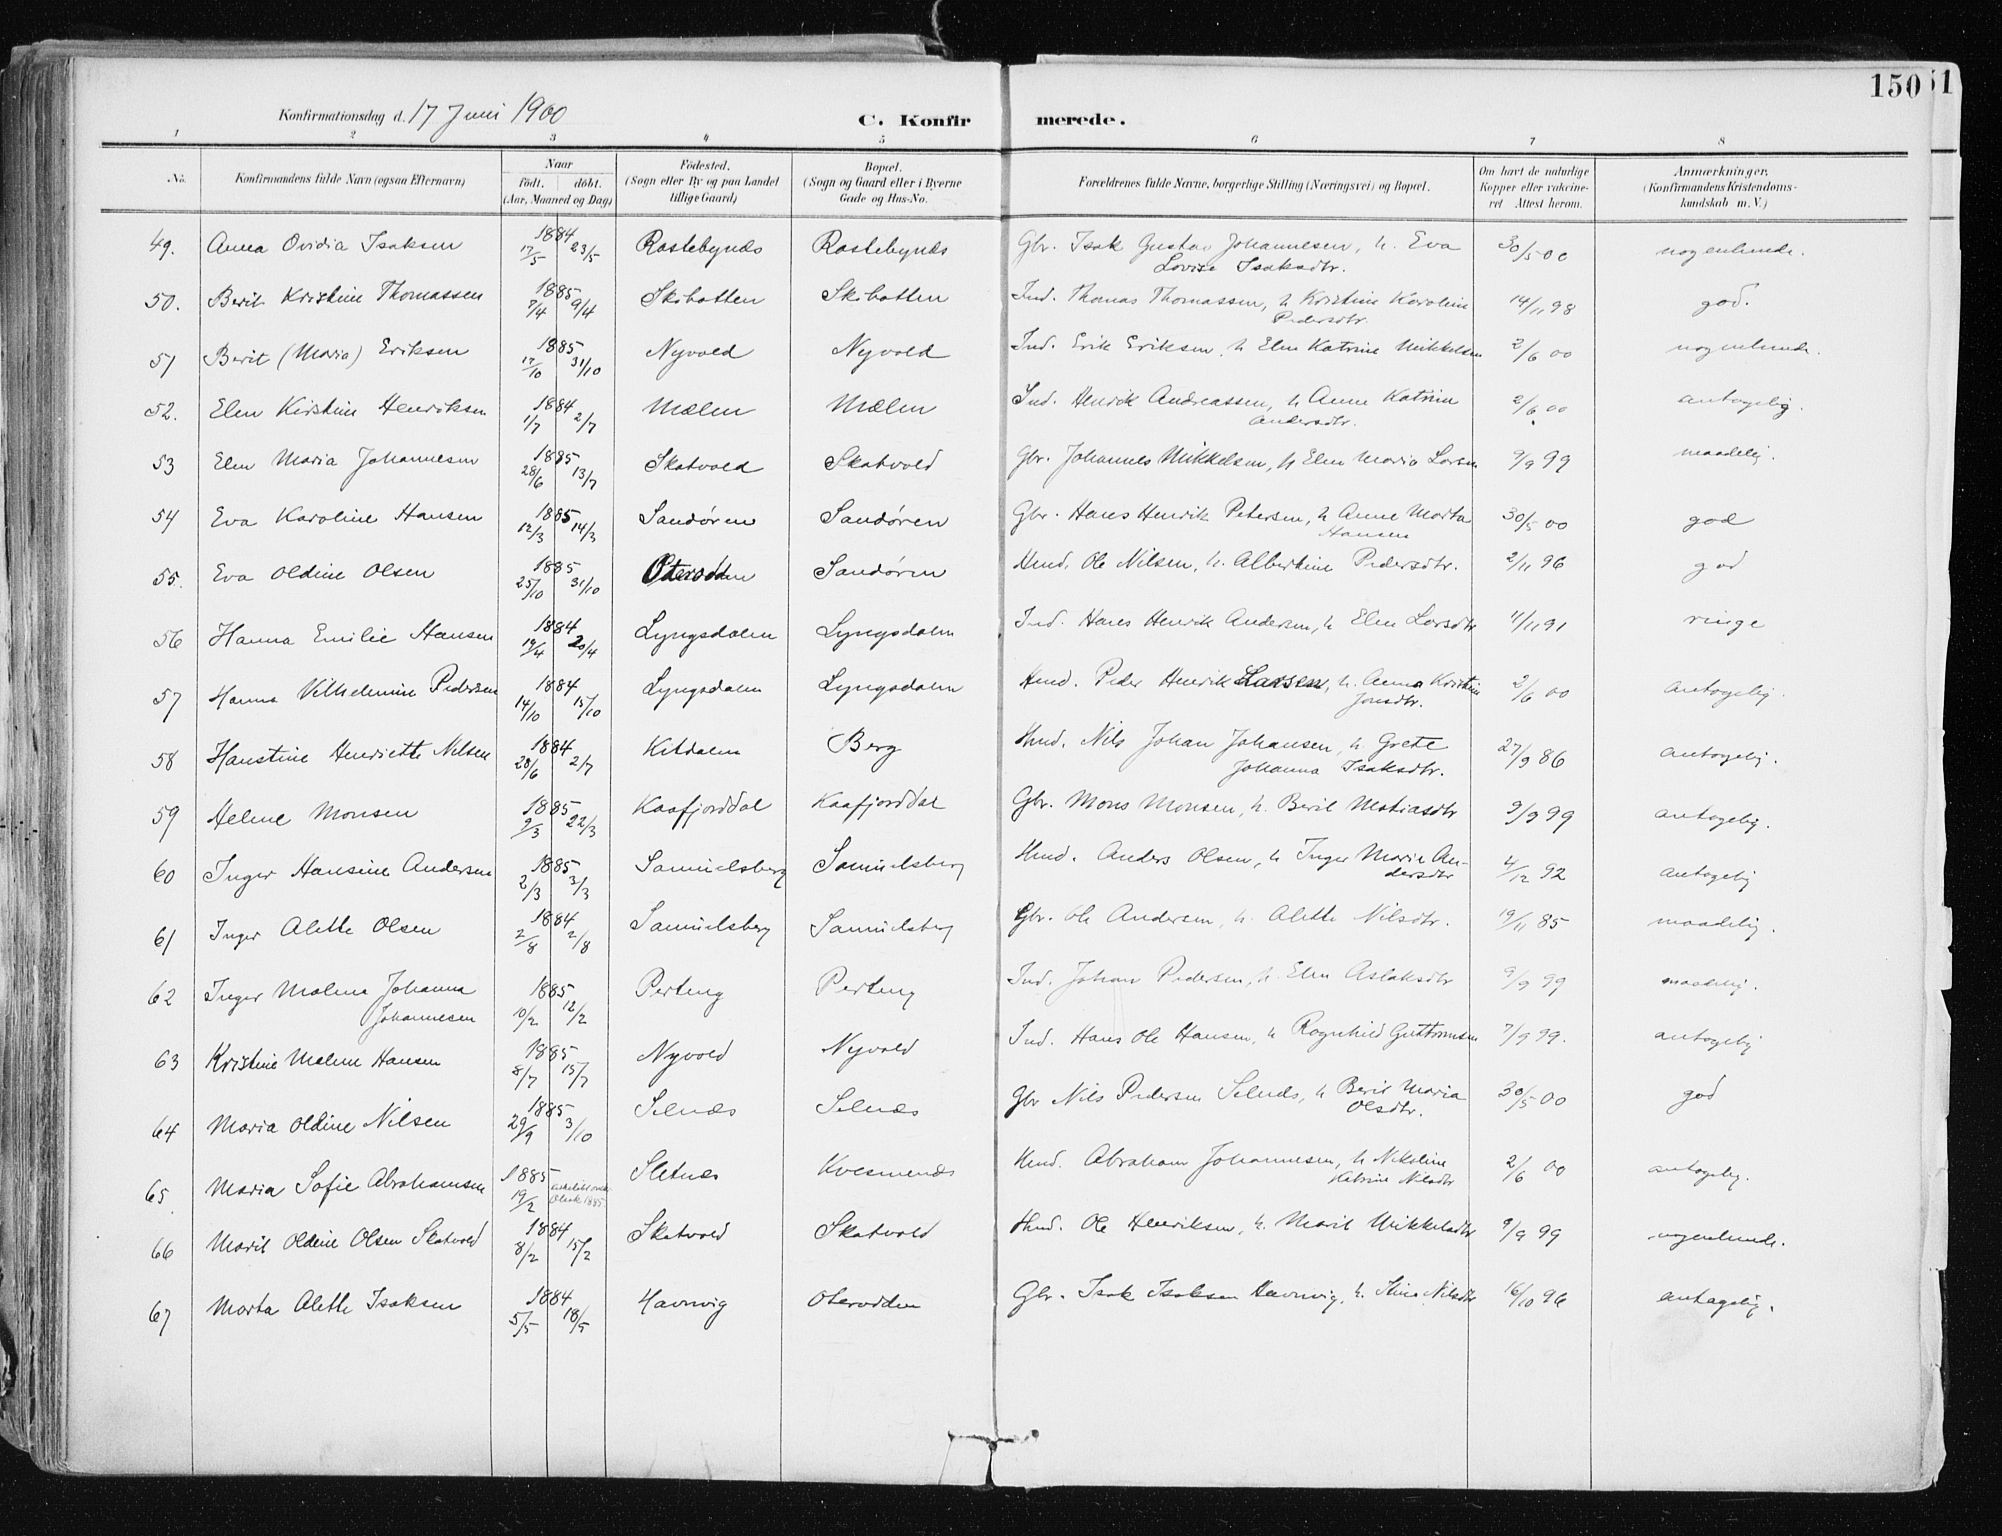 150 51
Konfirmationsdag d. 17 Juni 1900 C. Konfirmerede.
1 2 3 4 5 6 7 8
No. Konfirmandens fulde Navn (ogsaa Efternavn) Naar født. døbt. (Aar, Maaned og Dag) Fødested. (Sogn eller By og paa Landet tillige Gaard) Bopæl. (Sogn og Gaard eller i Byerne Gade og Hus-No. Forældrenes fulde Navne, borgerlige Stilling (Næringsvei) og Bopæl. Om havt de naturlige Kopper eller vakcineret Attest herom. Anmærkninger. (Konfirmandens Kristendomskundskab m. V.)
49. Anna Ovidia Isaksen 1884 17/5 23/5 Rastebynæs Rastebynæs Gbr. Isak Gustav Johannesen, h. Eva 30/5 00 nogenlunde.
Lovise Isaksdtr.
50. Berit Kristine Thomassen 1885 7/4 9/4 Skibotten Skibotten Ind. Thomas Thomassen, h Kristine Karoline 14/11 98 god.
Pedersdtr.
51 Berit (Maria) Eriksen 1885 17/10 31/10 Nyvold Nyvold Ind. Erik Eriksen, h Elen Katrine Mikkelsen 2/6 00 nogenlunde.
52. Elen Kirstine Henriksen 1884 1/7 2/7 Mælen Mælen Ind. Henrik Andreassen, h Anne Katrine 2/6 00 antagelig.
Andersdtr.
53 Elen Maria Johannesen 1885 28/6 13/7 Skatvold Skatvold Gbr. Johannes Mikkelsen, h Elen Maria Larsen 9/9 99 maadelig.
54 Eva Karoline Hansen 1885 12/3 14/3 Sandøren Sandøren Gbr. Hans Henrik Petersen, h Anne Marta 30/5 00 god
Hansen
55. Eva Oldine Olsen 1885 25/10 31/10 Oterodden Sandøren Hmd. Ole Nilsen, h. Albertine Pedersdtr. 2/11 96 god
56 Hanna Emilie Hansen 1884 19/4 20/4 Lyngsdalen Lyngsdalen Ind. Hans Henrik Andersen, h Elen Larsdtr 4/11 91 ringe
57 Hanna Vilhelmine Pedersen 1884 14/10 15/10 Lyngsdalen Lyngsdalen Hmd. Peder Henrik Larsen, h. Anna Kristine 2/6 00 antagelig.
Jonsdtr.
58 Hanstine Henriette Nilsen 1884 28/6 2/7 Kitdalen Berg Hmd. Nils Johan Johansen, h Grete 27/9 86 antagelig.
Johanna Isaksdtr.
59 Helene Monsen 1885 9/3 22/3 Kaafjorddal Kaafjorddal Gbr. Mons Monsen, h. Berit Matiasdtr 9/9 99 antagelig.
60 Inger Hansine Andersen 1885 2/3 3/3 Samuelsberg Samuelsberg Hmd. Anders Olsen, h Inger Marie An- 4/12 92 antagelig
dersdtr
61 Inger Alette Olsen 1884 2/8 2/8 Samuelsberg Samuelsberg Gbr. Ole Andersen, h. Alette Nilsdtr. 19/11 85 maadelig.
62 Inger Malene Johanna 1885 10/2 12/2 Perteng Perteng Ind. Johan Pedersen, h. Elen Aslaksdtr 9/9 99 maadelig.
Johannesen
63 Kristine Malene Hansen 1885 8/7 15/7 Nyvold Nyvold Ind. Hans Ole Hansen, h Ragnhild Guttormsen 7/9 99. antagelig
64 Maria Oldine Nilsen 1885 29/9 3/10 Selnæs Selnæs Gbr Nils Pedersen Selnæs, h Berit Maria 30/5 00 god
Olsdtr.
65. Maria Sofie Abrahamsen 1885 19/2 Sletnæs Kvesmenæs Hmd. Abraham Johannesen, h Nikoline 2/6 00 antagelig.
Katrine Nilsdtr
66 Marit Oldine Olsen Skatvold 1884 8/2 15/2 Skatvold Skatvold Hmd. Ole Henriksen, h. Marit Mikkelsdtr 9/9 99 nogenlunde.
67 Marta Alette Isaksen 1884 5/5 18/5 Havnvig Oterodden Gbr. Isak Isaksen Havnvig, h. Stine Nilsdtr 16/10 96 antagelig.